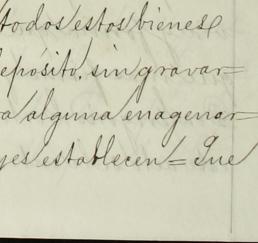 todos estos bienes
epósito, sin gravar=
a alguna enagenar=
yes establecen= Que